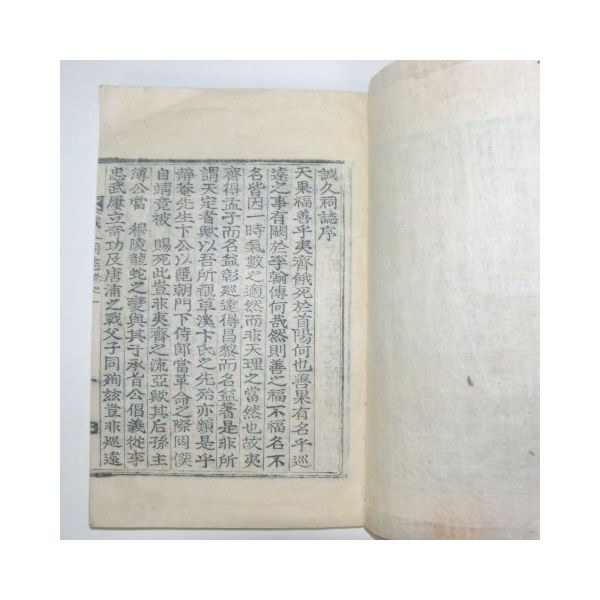 誠久祠誌序
天果福善乎夷齊餓死於首陽何也善果有名乎巡
遠之事有闕於李翰傳何哉然則善之福不福名不
名皆因一時氣數之適然而非天理之當然也故夷
齊得孟子而名益彰巡遠得昌黎而名益著是非所
謂天定者歟以吾所觀草溪卞氏之先始亦類是乎
靜菴先生卞公以麗朝門下侍郎當革命之際罔僕
自靖竟被 賜死此豈非夷齊之流亞歟其后孫主
簿公當 穆陵龍蛇之變與其子承旨公倡義從李
忠武屢立奇功及唐浦之戰父子同殉玆豈非巡遠
誠久祠誌